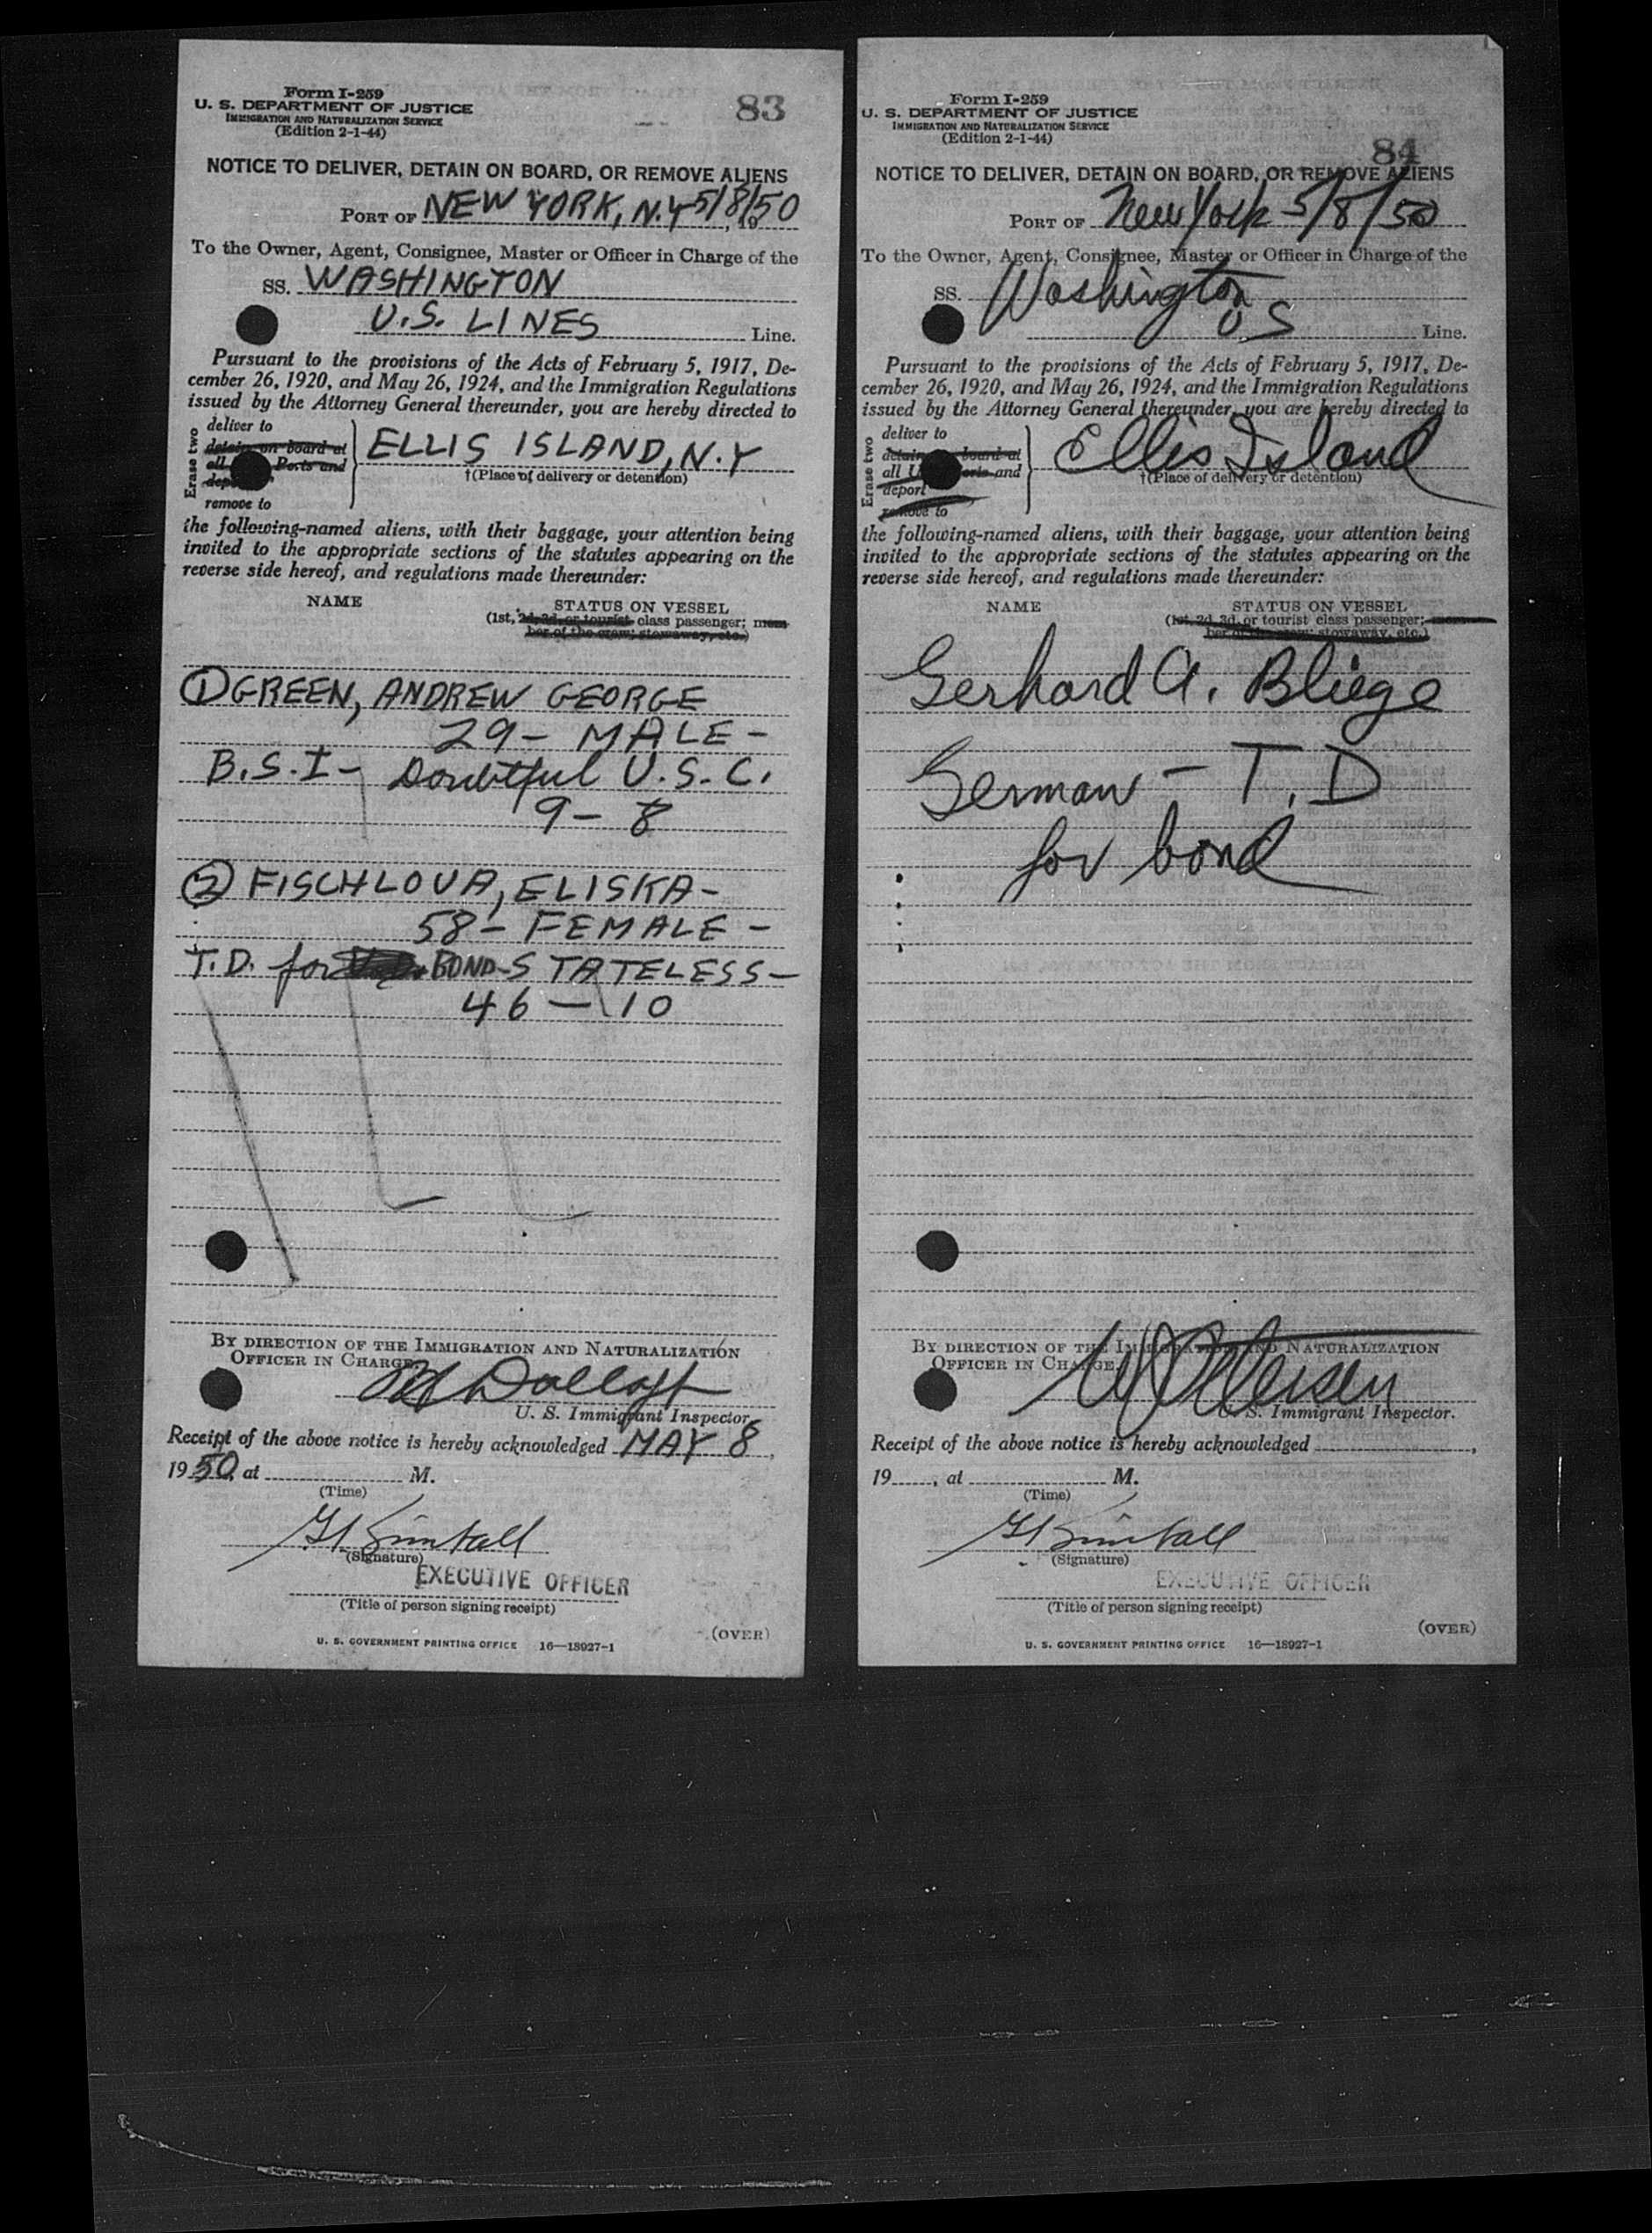 Form I-259
U. S. DEPARTMENT OF JUSTICE
IMMIGRATION AND NATURALIZATION SERVICE
(Edition 2-1-44)
83
NOTICE TO DELIVER, DETAIN ON BOARD, OR REMOVE ALIENS
PORT OF NEW YORK, N.Y 5/8/50, 19
To the Owner, Agent, Consignee, Master or Officer in Charge of the
SS. WASHINGTON
U.S. LINES Line.
Pursuant to the provisions of the Acts of February 5, 1917, De-
cember 26, 1920, and May 26, 1924, and the Immigration Regulations
issued by the Attorney General thereunder, you are hereby directed to
Erase two
deliver to
detain on board at
all Ports and
remove to
ELLIS ISLAND, N.Y
†(Place of delivery or detention)
the following-named aliens, with their baggage, your attention being
invited to the appropriate sections of the statutes appearing on the
reverse side hereof, and regulations made thereunder:
NAME STATUS ON VESSEL
(1st, 2d, 3d, or tourist class passenger; mem-
ber of the crew; stowaway, etc.)
① GREEN, ANDREW GEORGE
29 - MALE -
B.S.I - Doubtful U.S.C.
9 - 8
② FISCHLOVA, ELISKA -
58 - FEMALE -
T.D. for BOND - STATELESS -
46 - 10
BY DIRECTION OF THE IMMIGRATION AND NATURALIZATION
OFFICER IN CHARGE.
U. S. Immigrant Inspector.
Receipt of the above notice is hereby acknowledged MAY 8,
1950, at M.
(Time)
(Signature)
EXECUTIVE OFFICER
(Title of person signing receipt)
(OVER)
U. S. GOVERNMENT PRINTING OFFICE 16—18927-1
Form I-259
U. S. DEPARTMENT OF JUSTICE
IMMIGRATION AND NATURALIZATION SERVICE
(Edition 2-1-44)
84
NOTICE TO DELIVER, DETAIN ON BOARD, OR REMOVE ALIENS
PORT OF New York 5/8/50
To the Owner, Agent, Consignee, Master or Officer in Charge of the
SS. Washington
U S Line.
Pursuant to the provisions of the Acts of February 5, 1917, De-
cember 26, 1920, and May 26, 1924, and the Immigration Regulations
issued by the Attorney General thereunder, you are hereby directed to
Erase two
deliver to
detain board at
all U Ports and
deport
remove to
Ellis Island
†(Place of delivery or detention)
the following-named aliens, with their baggage, your attention being
invited to the appropriate sections of the statutes appearing on the
reverse side hereof, and regulations made thereunder:
NAME STATUS ON VESSEL
(1st, 2d, 3d, or tourist class passenger; mem-
ber of the crew; stowaway, etc.)
Gerhard A. Bliege
German - T.D
for bond
BY DIRECTION OF THE IMMIGRATION AND NATURALIZATION
OFFICER IN CHARGE.
U. S. Immigrant Inspector.
Receipt of the above notice is hereby acknowledged ,
19 , at M.
(Time)
(Signature)
EXECUTIVE OFFICER
(Title of person signing receipt)
(OVER)
U. S. GOVERNMENT PRINTING OFFICE 16—18927-1